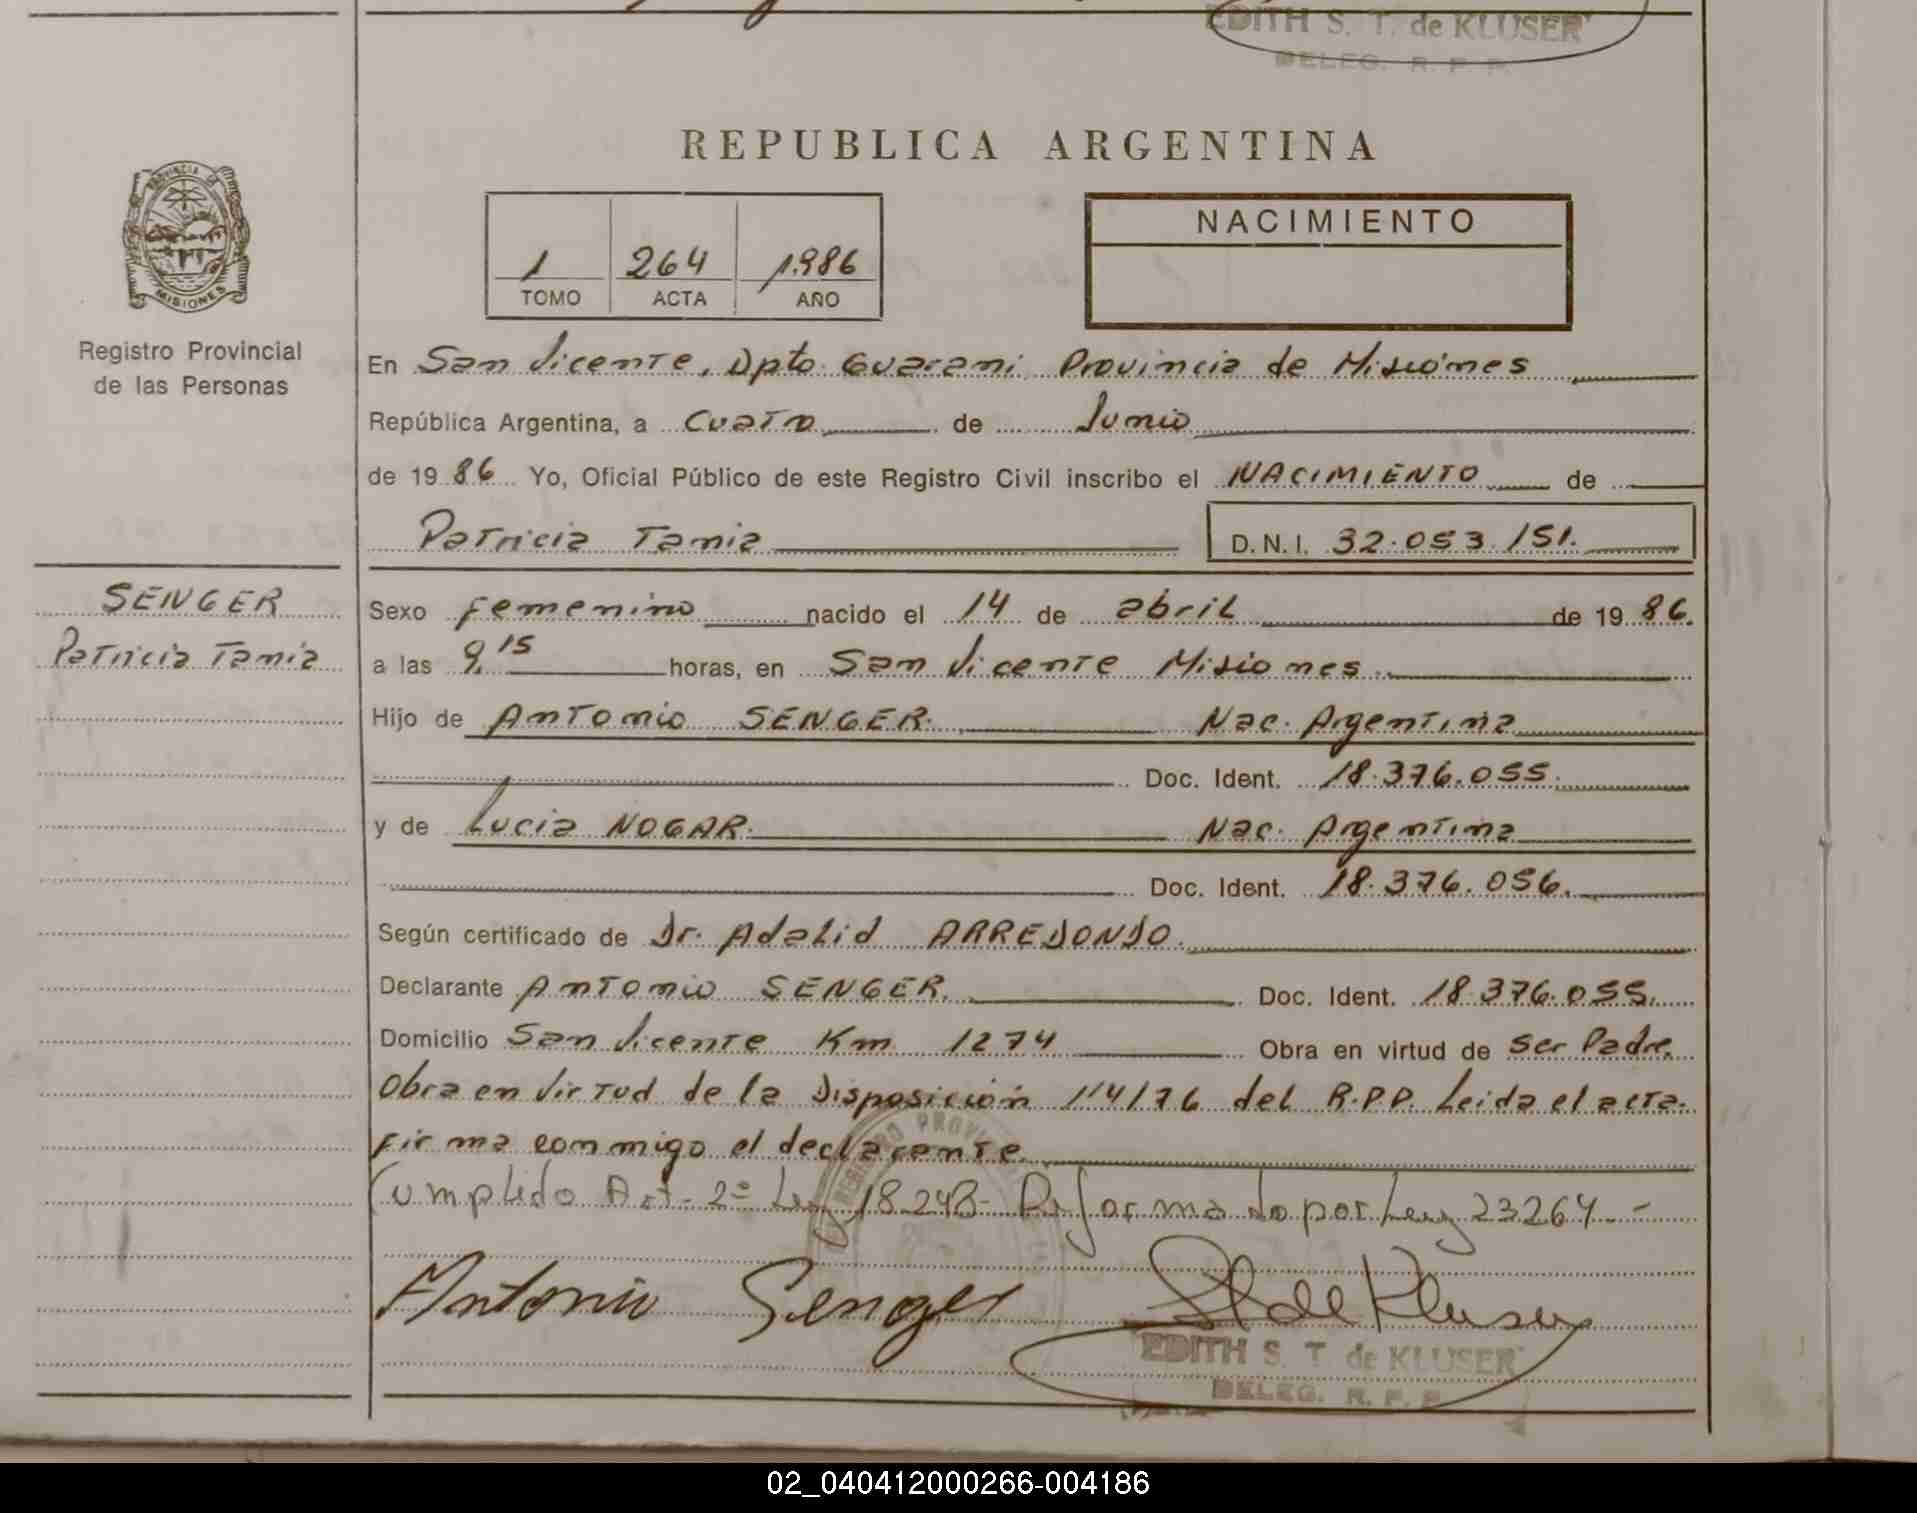 EDITH S. T. de KLUSER
DELEG. R. P. P.
REPUBLICA ARGENTINA
PROVINCIA DE
MISIONES
Registro Provincial
de las Personas
1 264 1986
TOMO ACTA AÑO
NACIMIENTO
En San Vicente, Dpto Guarani Provincia de Misiones
República Argentina, a Cuatro de Junio
de 1986 Yo, Oficial Público de este Registro Civil inscribo el NACIMIENTO de
Patricia Tania D.N.I. 32.053.151.
SENGER
Patricia Tania
Sexo Femenino nacido el 14 de abril de 1986.
a las 9,15 horas, en San Vicente Misiones
Hijo de Antonio SENGER. Nac. Argentina
Doc. Ident. 18.376.055.
y de Lucia NOGAR. Nac. Argentina
Doc. Ident. 18.376.056.
Según certificado de Dr. Adalid ARREDONDO.
Declarante Antonio SENGER. Doc. Ident. 18.376.055.
Domicilio San Vicente Km 1274 Obra en virtud de Ser Padre.
Obra en virtud de la Disposición 114/76 del R.P.P. Leida el acta.
firma conmigo el declarante.
Cumplido Art. 2º Ley 18.248- Reformado por Ley 23264.-
Antonio Senger
EDITH S. T. de KLUSER
DELEG. R. P. P.
02_040412000266-004186